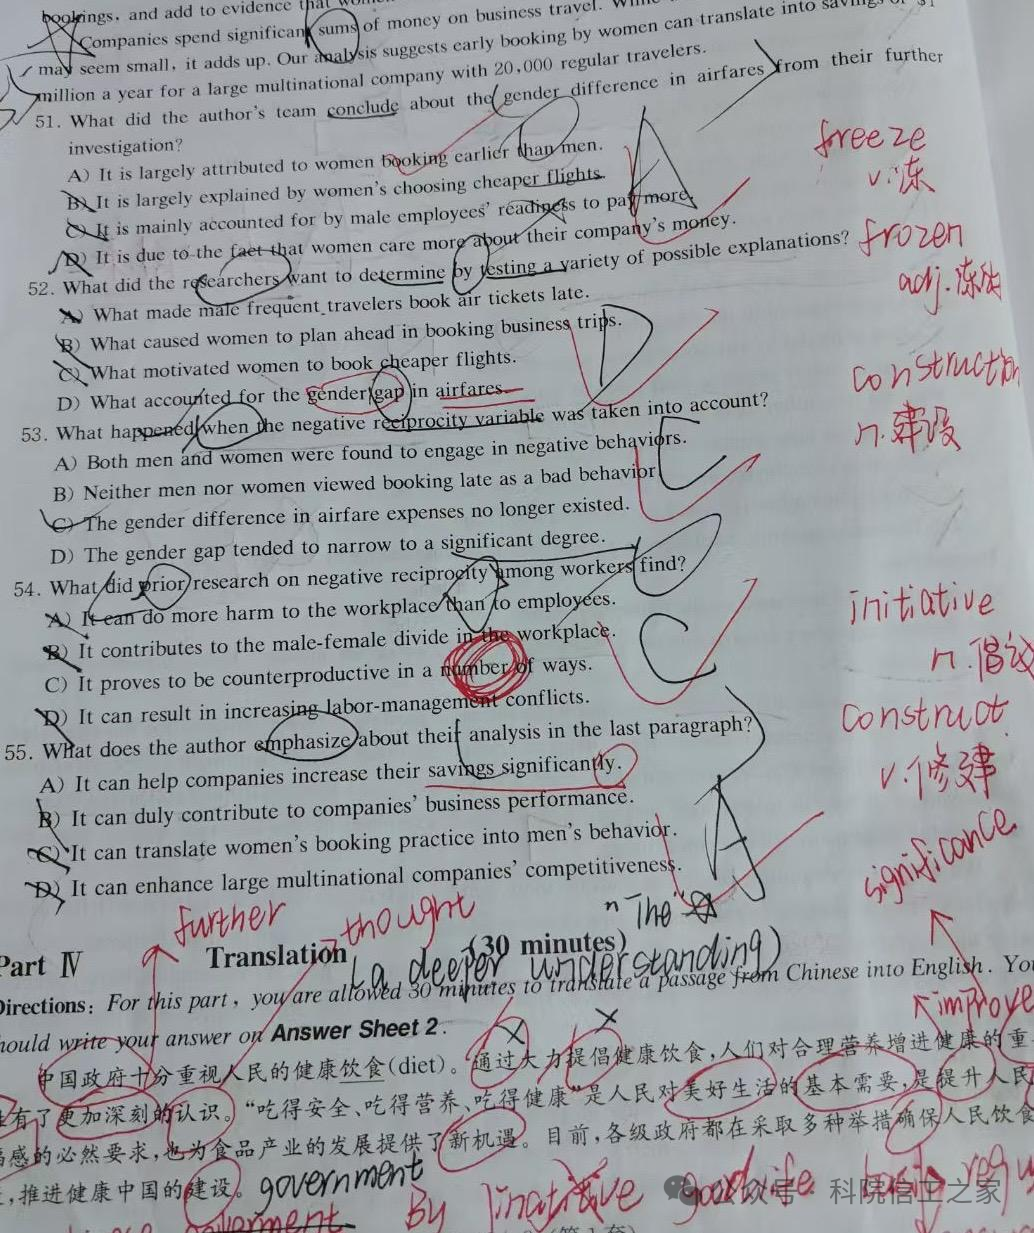 bookings, and add to evidence that
Companies spend significant sums of money on business travel.
may seem small, it adds up. Our analysis suggests early booking by women can translate into savings of $1
million a year for a large multinational company with 20,000 regular travelers.
51. What did the author's team conclude about the gender difference in airfares from their further
investigation?
A) It is largely attributed to women booking earlier than men.
B) It is largely explained by women's choosing cheaper flights.
C) It is mainly accounted for by male employees' readiness to pay more.
D) It is due to the fact that women care more about their company's money.
52. What did the researchers want to determine by testing a variety of possible explanations?
A) What made male frequent travelers book air tickets late.
B) What caused women to plan ahead in booking business trips.
C) What motivated women to book cheaper flights.
D) What accounted for the gender gap in airfares.
53. What happened when the negative reciprocity variable was taken into account?
A) Both men and women were found to engage in negative behaviors.
B) Neither men nor women viewed booking late as a bad behavior.
C) The gender difference in airfare expenses no longer existed.
D) The gender gap tended to narrow to a significant degree.
54. What did prior research on negative reciprocity among workers find?
A) It can do more harm to the workplace than to employees.
B) It contributes to the male-female divide in the workplace.
C) It proves to be counterproductive in a number of ways.
D) It can result in increasing labor-management conflicts.
55. What does the author emphasize about their analysis in the last paragraph?
A) It can help companies increase their savings significantly.
B) It can duly contribute to companies' business performance.
C) It can translate women's booking practice into men's behavior.
D) It can enhance large multinational companies' competitiveness.
A
D
C
C
A
freeze
v.冻
frozen
adj.冻的
construction
n.建设
initiative
n.倡议
construct
v.修建
significance
improve
further
thought
"The
(a deeper understanding)
Part Ⅳ Translation (30 minutes)
Directions: For this part, you are allowed 30 minutes to translate a passage from Chinese into English. You
should write your answer on Answer Sheet 2.
中国政府十分重视人民的健康饮食(diet)。通过大力提倡健康饮食,人们对合理营养增进健康的重
性有了更加深刻的认识。“吃得安全、吃得营养、吃得健康”是人民对美好生活的基本需要,是提升人民
福感的必然要求,也为食品产业的发展提供了新机遇。目前,各级政府都在采取多种举措确保人民饮食
,推进健康中国的建设。
government
By
good life
公众号 · 科院信工之家